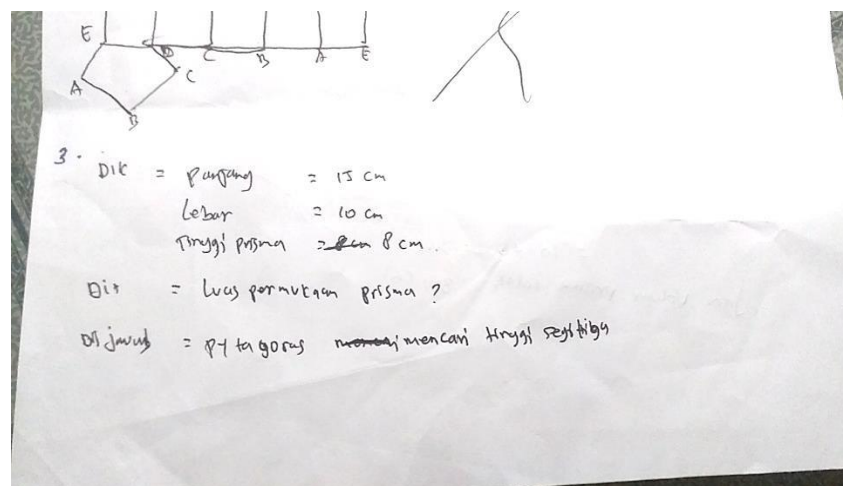 E
D C B A E
A C
B
3. Dik = panjang = 15 cm
Lebar = 10 cm
Tinggi prisma = 8 cm
Dit = Luas permukaan prisma ?
Di jawab = pytagoras mencari tinggi segitiga